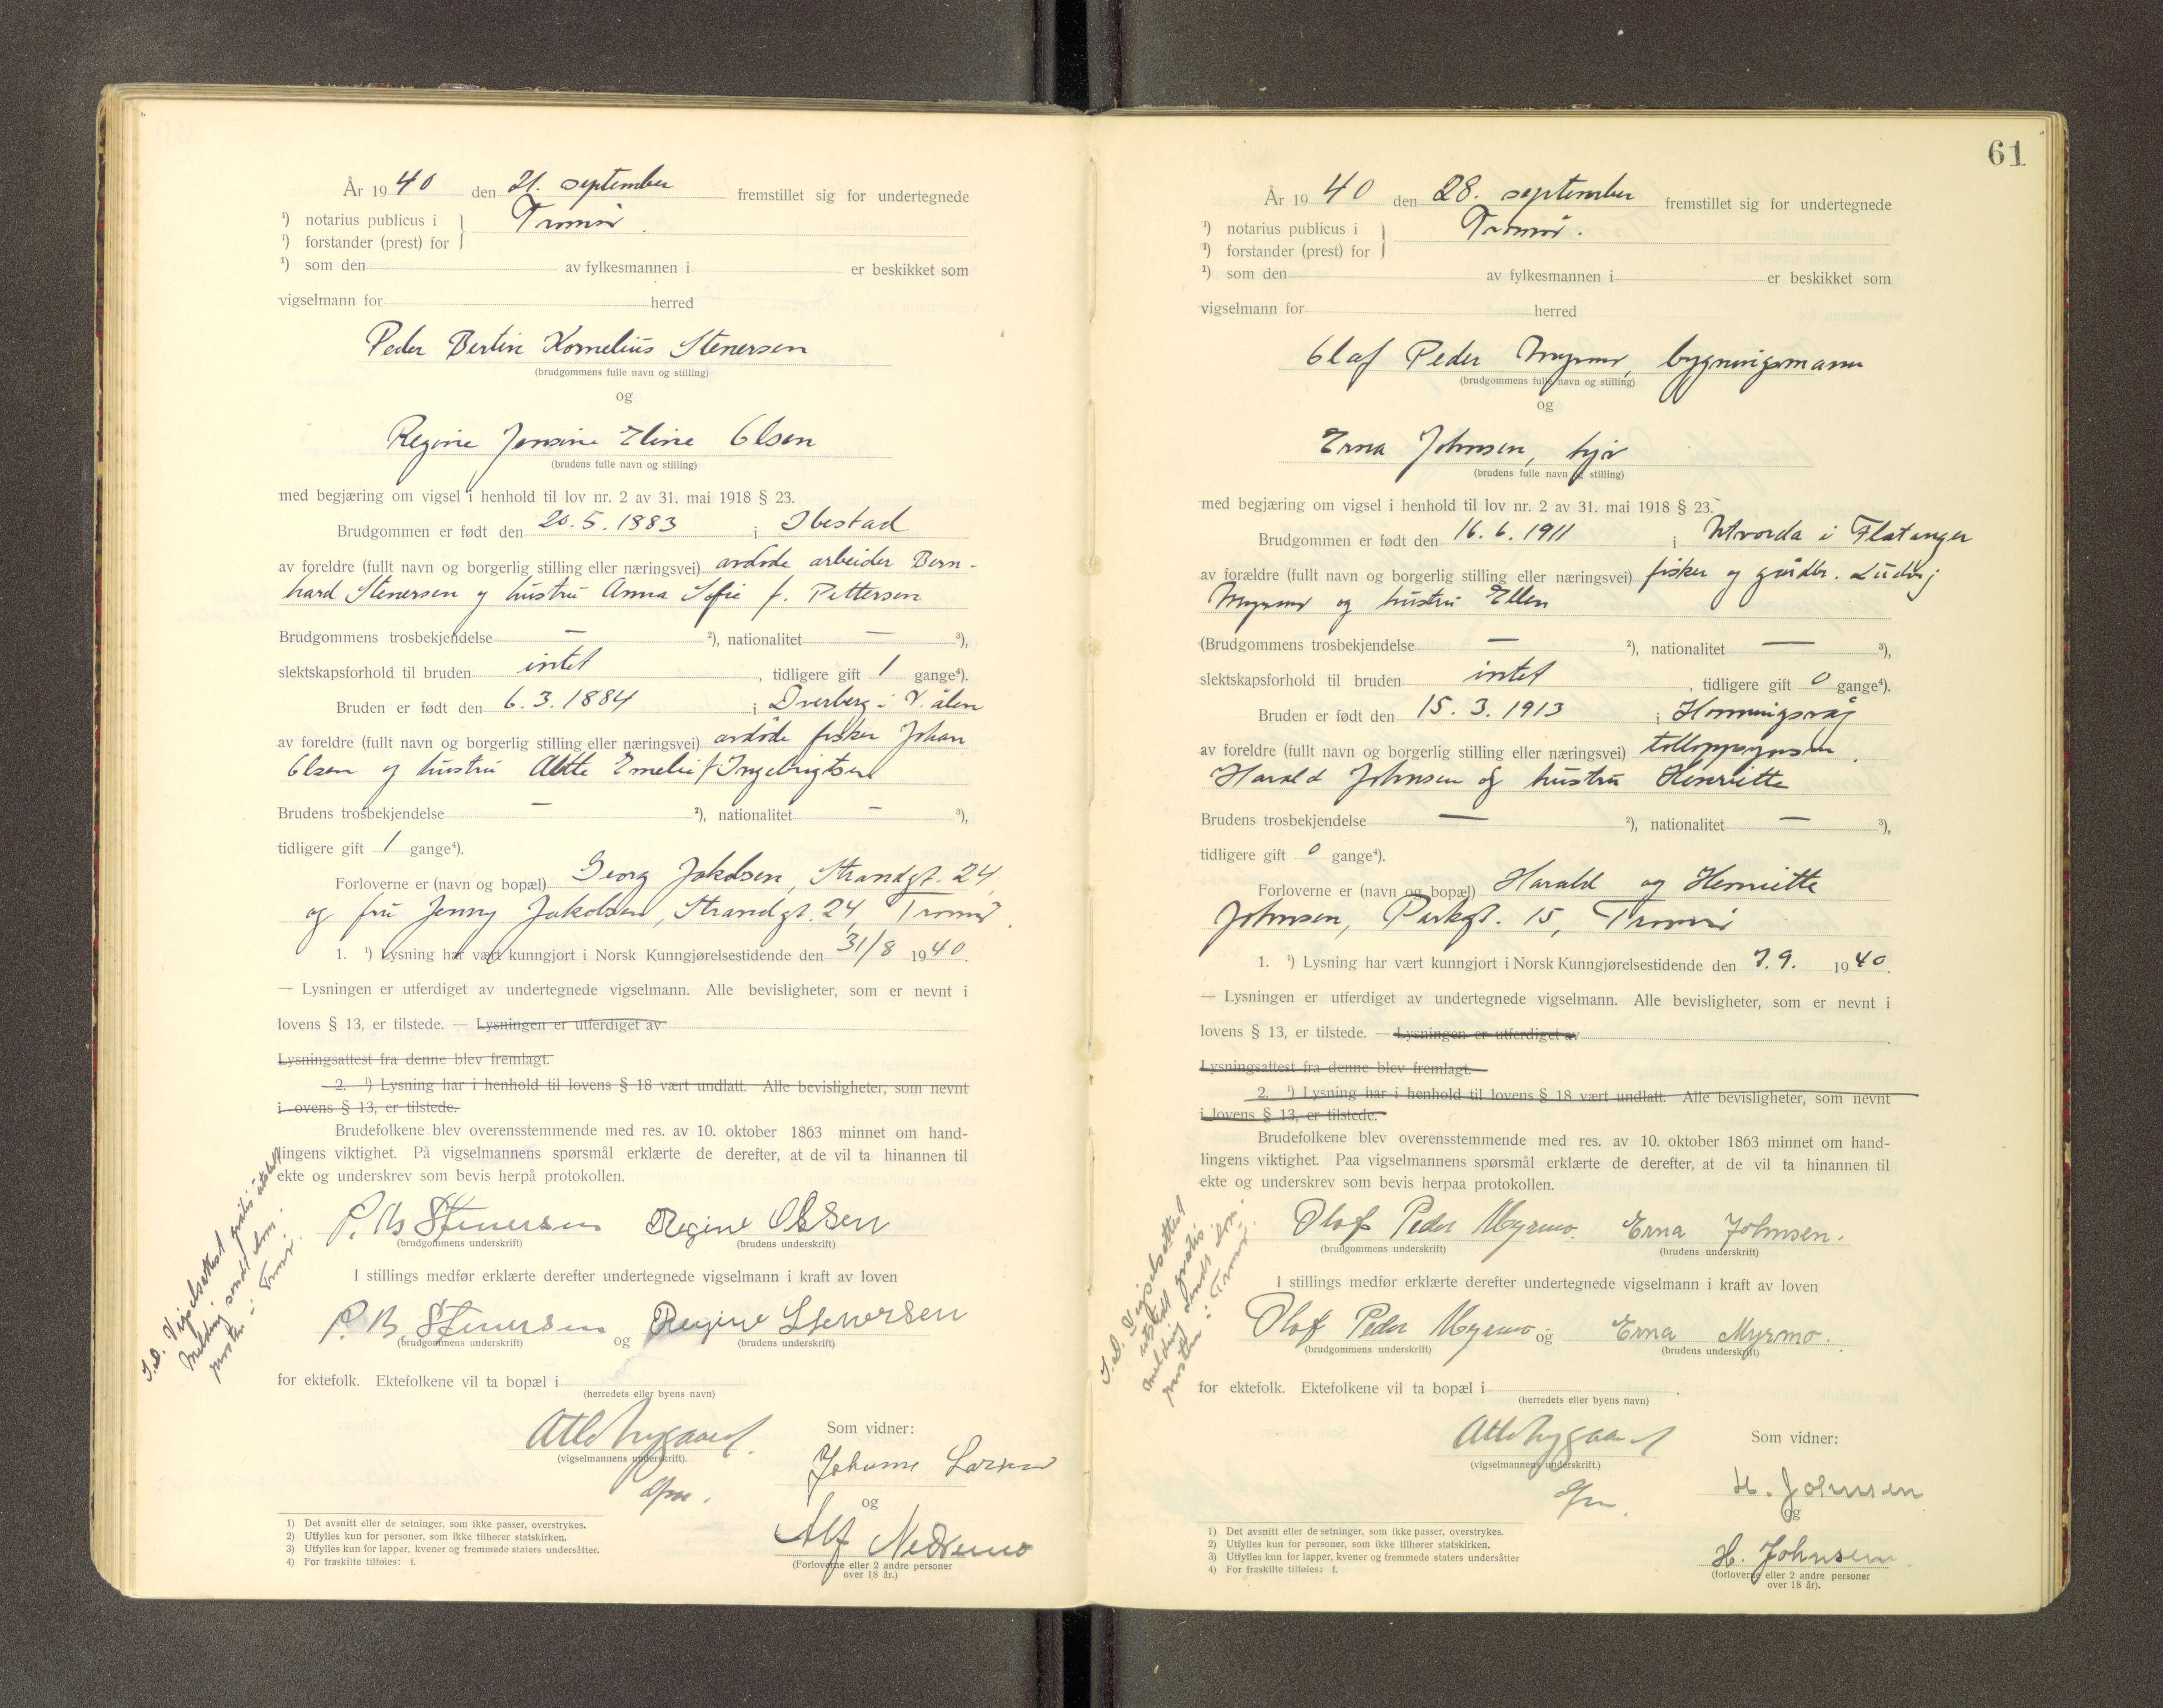 År 1940 den 21. september fremstillet sig for undertegnede
¹) notarius publicus i } Tromsø.
¹) forstander (prest) for
¹) som den av fylkesmannen i er beskikket som
vigselmann for herred
Peder Bertin Kornelius Stenersen
(brudgommens fulle navn og stilling)
og
Regine Jensine Eline Olsen
(brudens fulle navn og stilling)
med begjæring om vigsel i henhold til lov nr. 2 av 31. mai 1918 § 23.
Brudgommen er født den 20.5.1883 i Ibestad
av foreldre (fullt navn og borgerlig stilling eller næringsvei) avdøde arbeider Bern-
hard Stenersen og hustru Anna Sofie f. Pettersen
Brudgommens trosbekjendelse — ²), nationalitet — ³),
slektskapsforhold til bruden intet, tidligere gift 1 gange⁴).
Bruden er født den 6.3.1884 i Dverberg i V.ålen
av foreldre (fullt navn og borgerlig stilling eller næringsvei) avdøde fisker Johan
Olsen og hustru Emelie f. Ingebrigtsen
Brudens trosbekjendelse — ²), nationalitet — ³),
tidligere gift 1 gange⁴).
Forloverne er (navn og bopæl) Georg Jakobsen, Strandgt. 24,
og fru Jenny Jakobsen, Strandgt. 24, Tromsø.
1. ¹) Lysning har vært kunngjort i Norsk Kunngjørelsestidende den 31/8 1940.
— Lysningen er utferdiget av undertegnede vigselmann. Alle bevisligheter, som er nevnt i
lovens § 13, er tilstede. — Lysningen er utferdiget av
Lysningsattest fra denne blev fremlagt.
2. ¹) Lysning har i henhold til lovens § 18 vært undlatt. Alle bevisligheter, som nevnt
i ovens § 13, er tilstede.
Brudefolkene blev overensstemmende med res. av 10. oktober 1863 minnet om hand-
lingens viktighet. På vigselmannens spørsmål erklærte de derefter, at de vil ta hinannen til
ekte og underskrev som bevis herpå protokollen.
P. B Stenersen Regine Olsen
(brudgommens underskrift) (brudens underskrift)
I stillings medfør erklærte derefter undertegnede vigselmann i kraft av loven
P. B. Stenersen og Regine Stenersen
(brudgommens underskrift) (brudens underskrift)
for ektefolk. Ektefolkene vil ta bopæl i
(herredets eller byens navn)
Atle Nygaard.
(vigselmannens underskrift).
Som vidner:
Johanne Larsen
og
Alf Nedremo
(Forloverne eller 2 andre personer
over 18 år.)
1) Det avsnitt eller de setninger, som ikke passer, overstrykes.
2) Utfylles kun for personer, som ikke tilhører statskirken.
3) Utfylles kun for lapper, kvener og fremmede staters undersåtter.
4) For fraskilte tilføies: f.
S.D. Vigselsattest gratis utstedt
Melding sendt dom-
prosten i Tromsø.
61
År 1940 den 28. september fremstillet sig for undertegnede
¹) notarius publicus i } Tromsø.
¹) forstander (prest) for
¹) som den av fylkesmannen i er beskikket som
vigselmann for herred
Olaf Peder Myrmo, bygningsmann
(brudgommens fulle navn og stilling)
og
Erna Johnsen, syer
(brudens fulle navn og stilling)
med begjæring om vigsel i henhold til lov nr. 2 av 31. mai 1918 § 23.
Brudgommen er født den 16.6.1911 i Utvorda i Flatanger
av forældre (fullt navn og borgerlig stilling eller næringsvei) fisker og gårdbr. Ludvig
Myrmo og hustru Ellen
(Brudgommens trosbekjendelse — ²), nationalitet — ³),
slektskapsforhold til bruden intet, tidligere gift 0 gange⁴).
Bruden er født den 15.3.1913 i Honningsvåg
av foreldre (fullt navn og borgerlig stilling eller næringsvei) tolloppsynsm.
Harald Johnsen og hustru Henriette
Brudens trosbekjendelse — ²), nationalitet — ³),
tidligere gift 0 gange⁴).
Forloverne er (navn og bopæl) Harald og Henriette
Johnsen, Parkgt. 15, Tromsø
1. ¹) Lysning har vært kunngjort i Norsk Kunngjørelsestidende den 7.9. 1940.
— Lysningen er utferdiget av undertegnede vigselmann. Alle bevisligheter, som er nevnt i
lovens § 13, er tilstede. — Lysningen er utferdiget av
Lysningsattest fra denne blev fremlagt.
2. ¹) Lysning har i henhold til lovens § 18 vært undlatt. Alle bevisligheter, som nevnt
i lovens § 13, er tilstede.
Brudefolkene blev overensstemmende med res. av 10. oktober 1863 minnet om hand-
lingens viktighet. Paa vigselmannens spørsmål erklærte de derefter, at de vil ta hinannen til
ekte og underskrev som bevis herpaa protokollen.
Olaf Peder Myrmo. Erna Johnsen.
(brudgommens underskrift) (brudens underskrift)
I stillings medfør erklærte derefter undertegnede vigselmann i kraft av loven
Olaf Peder Myrmo og Erna Myrmo.
(brudgommens underskrift) (brudens underskrift)
for ektefolk. Ektefolkene vil ta bopæl i
(herredets eller byens navn)
Atle Nygaard
(vigselmannens underskrift.)
Som vidner:
H. Johnsen
og
H. Johnsen.
(forloverne eller 2 andre personer
over 18 år).
1) Det avsnitt eller de setninger, som ikke passer, overstrykes.
2) Utfylles kun for personer, som ikke tilhører statskirken.
3) Utfylles kun for lapper, kvener og fremmede staters undersåtter
4) For fraskilte tilføies: f.
S.D. Vigselsattest
utstedt gratis
melding sendt dom-
prosten i Tromsø.